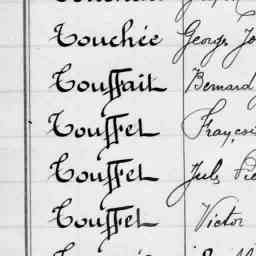 Touchée Georges
Touffait Bernard
Touffet
Touffet Jules
Touffet Victor